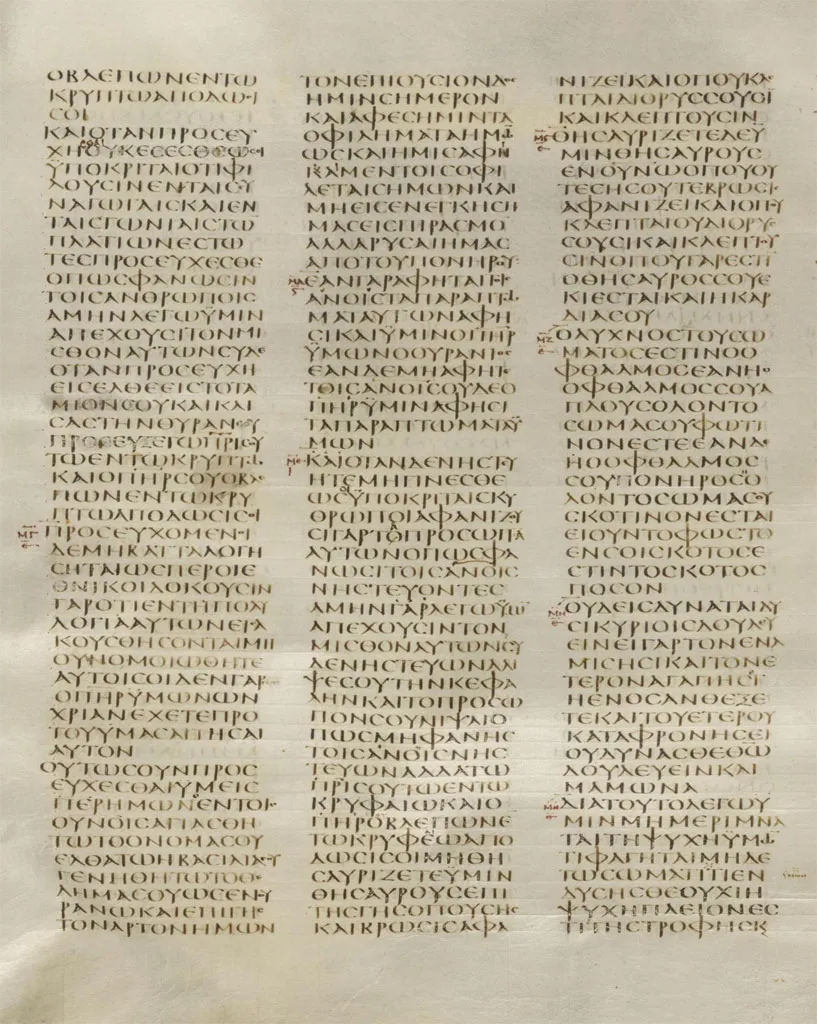 ΟΒΛΕΠΩΝΕΝΤΩ
ΚΡΥΠΤΩΑΠΟΔΩϹΙ
ϹΟΙ
ΚΑΙΟΤΑΝΠΡΟϹΕΥ
ΧΗΟΥΚΕϹΕϹΘΕΩϹΟΙ
ΫΠΟΚΡΙΤΑΙΟΤΙΦΙ
ΛΟΥϹΙΝΕΝΤΑΙϹΥ
ΝΑΓΩΓΑΙϹΚΑΙΕΝ
ΤΑΙϹΓΩΝΙΑΙϹΤΩ
ΠΛΑΤΙΩΝΕϹΤΩ
ΤΕϹΠΡΟϹΕΥΧΕϹΘΕ
ΟΠΩϹΦΑΝΩϹΙΝ
ΤΟΙϹΑΝΘΡΩΠΟΙϹ
ΑΜΗΝΛΕΓΩΫΜΙΝ
ΑΠΕΧΟΥϹΙΤΟΝΜΙ
ϹΘΟΝΑΥΤΩΝϹΥΔΕ
ΟΤΑΝΠΡΟϹΕΥΧΗ
ΕΙϹΕΛΘΕΕΙϹΤΟΤΑ
ΜΙΟΝϹΟΥΚΑΙΚΛΙ
ϹΑϹΤΗΝΘΥΡΑΝϹΟΥ
ΠΡΟϹΕΥΞΕΤΩΠΡΙϹΟΥ
ΤΩΕΝΤΩΚΡΥΠΤΩ
ΚΑΙΟΠΗΡϹΟΥΟΒΛΕ
ΠΩΝΕΝΤΩΚΡΥ
ΠΤΩΑΠΟΔΩϹΙϹΟΙ
ΜΓ ΠΡΟϹΕΥΧΟΜΕΝΟΙ
ΔΕΜΗΒΑΤΤΑΛΟΓΗ
ϹΗΤΑΙΩϹΠΕΡΟΙΕ
ΘΝΙΚΟΙΔΟΚΟΥϹΙΝ
ΓΑΡΟΤΙΕΝΤΗΠΟΛΥ
ΛΟΓΙΑΑΥΤΩΝΕΙϹΑ
ΚΟΥϹΘΗϹΟΝΤΑΙΜΗ
ΟΥΝΟΜΟΙΩΘΗΤΕ
ΑΥΤΟΙϹΟΙΔΕΝΓΑΡ
ΟΠΗΡΫΜΩΝΩΝ
ΧΡΙΑΝΕΧΕΤΕΠΡΟ
ΤΟΥΥΜΑϹΑΙΤΗϹΑΙ
ΑΥΤΟΝ
ΟΥΤΩϹΟΥΝΠΡΟϹ
ΕΥΧΕϹΘΑΙΥΜΕΙϹ
ΠΕΡΗΜΩΝΟΕΝΤΟΙϹ
ΟΥΝΟΙϹΑΓΙΑϹΘΗ
ΤΩΤΟΟΝΟΜΑϹΟΥ
ΕΛΘΑΤΩΗΒΑϹΙΛΙΑϹΟΥ
ΓΕΝΗΘΗΤΩΤΟΘΕ
ΛΗΜΑϹΟΥΩϹΕΝΟΥ
ΡΑΝΩΚΑΙΕΠΙΓΗϹ
ΤΟΝΑΡΤΟΝΗΜΩΝ
ΤΟΝΕΠΙΟΥϹΙΟΝΔΟϹ
ΗΜΙΝϹΗΜΕΡΟΝ
ΚΑΙΑΦΕϹΗΜΙΝΤΑ
ΟΦΙΛΗΜΑΤΑΗΜΩ
ΩϹΚΑΙΗΜΙϹΑΦΗ
ΚΑΜΕΝΤΟΙϹΟΦΙ
ΛΕΤΑΙϹΗΜΩΝΚΑΙ
ΜΗΕΙϹΕΝΕΓΚΗϹΗ
ΜΑϹΕΙϹΠΙΡΑϹΜΟ
ΑΛΛΑΡΥϹΑΙΗΜΑϹ
ΑΠΟΤΟΥΠΟΝΗΡΟΥ
ΜΔ ΕΑΝΓΑΡΑΦΗΤΑΙΤΟΙϹ
ΑΝΟΙϹΤΑΠΑΡΑΠΤΩ
ΜΑΤΑΑΥΤΩΝΑΦΗ
ϹΙΚΑΙΫΜΙΝΟΠΗΡ
ΫΜΩΝΟΟΥΡΑΝΙΟϹ
ΕΑΝΔΕΜΗΑΦΗΤΕ
ΤΟΙϹΑΝΟΙϹΟΥΔΕΟ
ΠΗΡΫΜΙΝΑΦΗϹΙ
ΤΑΠΑΡΑΠΤΩΜΑΤΑΫ
ΜΩΝ
ΜΕ ΚΑΙΟΤΑΝΔΕΝΗϹΤΕΥ
ΗΤΕΜΗΓΙΝΕϹΘΕ
ΩϹΟΥΠΟΚΡΙΤΑΙϹΚΥ
ΘΡΩΠΟΙΑΦΑΝΙΖΟΥ
ϹΙΓΑΡΤΟΠΡΟϹΩΠΑ
ΑΥΤΩΝΟΠΩϹΦΑ
ΝΩϹΙΤΟΙϹΑΝΟΙϹ
ΝΗϹΤΕΥΟΝΤΕϹ
ΑΜΗΝΓΑΡΛΕΓΩΫΜΙ
ΑΠΕΧΟΥϹΙΝΤΟΝ
ΜΙϹΘΟΝΑΥΤΩΝϹΥ
ΔΕΝΗϹΤΕΥΩΝΑΛΙ
ΨΕϹΟΥΤΗΝΚΕΦΑ
ΛΗΝΚΑΙΤΟΠΡΟϹΩ
ΠΟΝϹΟΥΝΙΨΑΙΟ
ΠΩϹΜΗΦΑΝΗϹ
ΤΟΙϹΑΝΟΙϹΝΗϹ
ΤΕΥΩΝΑΛΛΑΤΩ
ΠΡΙϹΟΥΤΩΕΝΤΩ
ΚΡΥΦΑΙΩΚΑΙΟ
ΠΗΡΟΒΛΕΠΩΝΕ
ΤΩΚΡΥΦΕΩΑΠΟ
ΔΩϹΙϹΟΙΜΗΘΗ
ϹΑΥΡΙΖΕΤΕΫΜΙΝ
ΘΗϹΑΥΡΟΥϹΕΠΙ
ΤΗϹΓΗϹΟΠΟΥϹΗϹ
ΚΑΙΒΡΩϹΙϹΑΦΑ
ΝΙΖΕΙΚΑΙΟΠΟΥΚΛΕ
ΠΤΑΙΔΙΟΡΥϹϹΟΥϹΙ
ΚΑΙΚΛΕΠΤΟΥϹΙΝ
ΜϚ ΘΗϹΑΥΡΙΖΕΤΕΔΕΥ
ΜΙΝΘΗϹΑΥΡΟΥϹ
ΕΝΟΥΝΩΟΠΟΥΟΥ
ΤΕϹΗϹΟΥΤΕΒΡΩϹΙϹ
ΑΦΑΝΙΖΕΙΚΑΙΟΠΟΥ
ΚΛΕΠΤΑΙΟΥΔΙΟΡΥϹ
ϹΟΥϹΙΚΑΙΚΛΕΠΤΟΥ
ϹΙΝΟΠΟΥΓΑΡΕϹΤΙ
ΟΘΗϹΑΥΡΟϹϹΟΥΕ
ΚΙΕϹΤΑΙΚΑΙΗΚΑΡ
ΔΙΑϹΟΥ
ΜΖ ΟΛΥΧΝΟϹΤΟΥϹΩ
ΜΑΤΟϹΕϹΤΙΝΟΟ
ΦΘΑΛΜΟϹΕΑΝΗΟ
ΟΦΘΑΛΜΟϹϹΟΥΑ
ΠΛΟΥϹΟΛΟΝΤΟ
ϹΩΜΑϹΟΥΦΩΤΙ
ΝΟΝΕϹΤΕΕΑΝΔΕ
ΗΟΟΦΘΑΛΜΟϹ
ϹΟΥΠΟΝΗΡΟϹΟ
ΛΟΝΤΟϹΩΜΑϹΟΥ
ϹΚΟΤΙΝΟΝΕϹΤΑΙ
ΕΙΟΥΝΤΟΦΩϹΤΟ
ΕΝϹΟΙϹΚΟΤΟϹΕ
ϹΤΙΝΤΟϹΚΟΤΟϹ
ΠΟϹΟΝ
ΜΗ ΟΥΔΕΙϹΔΥΝΑΤΑΙΔΥ
ϹΙΚΥΡΙΟΙϹΔΟΥΛΕΥ
ΕΙΝΕΙΓΑΡΤΟΝΕΝΑ
ΜΙϹΗϹΙΚΑΙΤΟΝΕ
ΤΕΡΟΝΑΓΑΠΗϹΙ
ΗΕΝΟϹΑΝΘΕΞΕ
ΤΕΚΑΙΤΟΥΕΤΕΡΟΥ
ΚΑΤΑΦΡΟΝΗϹΕΙ
ΟΥΔΥΝΑϹΘΕΘΩ
ΔΟΥΛΕΥΕΙΝΚΑΙ
ΜΑΜΩΝΑ
ΜΘ ΔΙΑΤΟΥΤΟΛΕΓΩΥ
ΜΙΝΜΗΜΕΡΙΜΝΑ
ΤΑΙΤΗΨΥΧΗΥΜΩ
ΤΙΦΑΓΗΤΑΙΜΗΔΕ
ΤΩϹΩΜΑΤΙΤΙΕΝ
ΔΥϹΗϹΘΕΟΥΧΙΗ
ΨΥΧΗΠΛΕΙΟΝΕϹ
ΤΙΤΗϹΤΡΟΦΗϹΚ